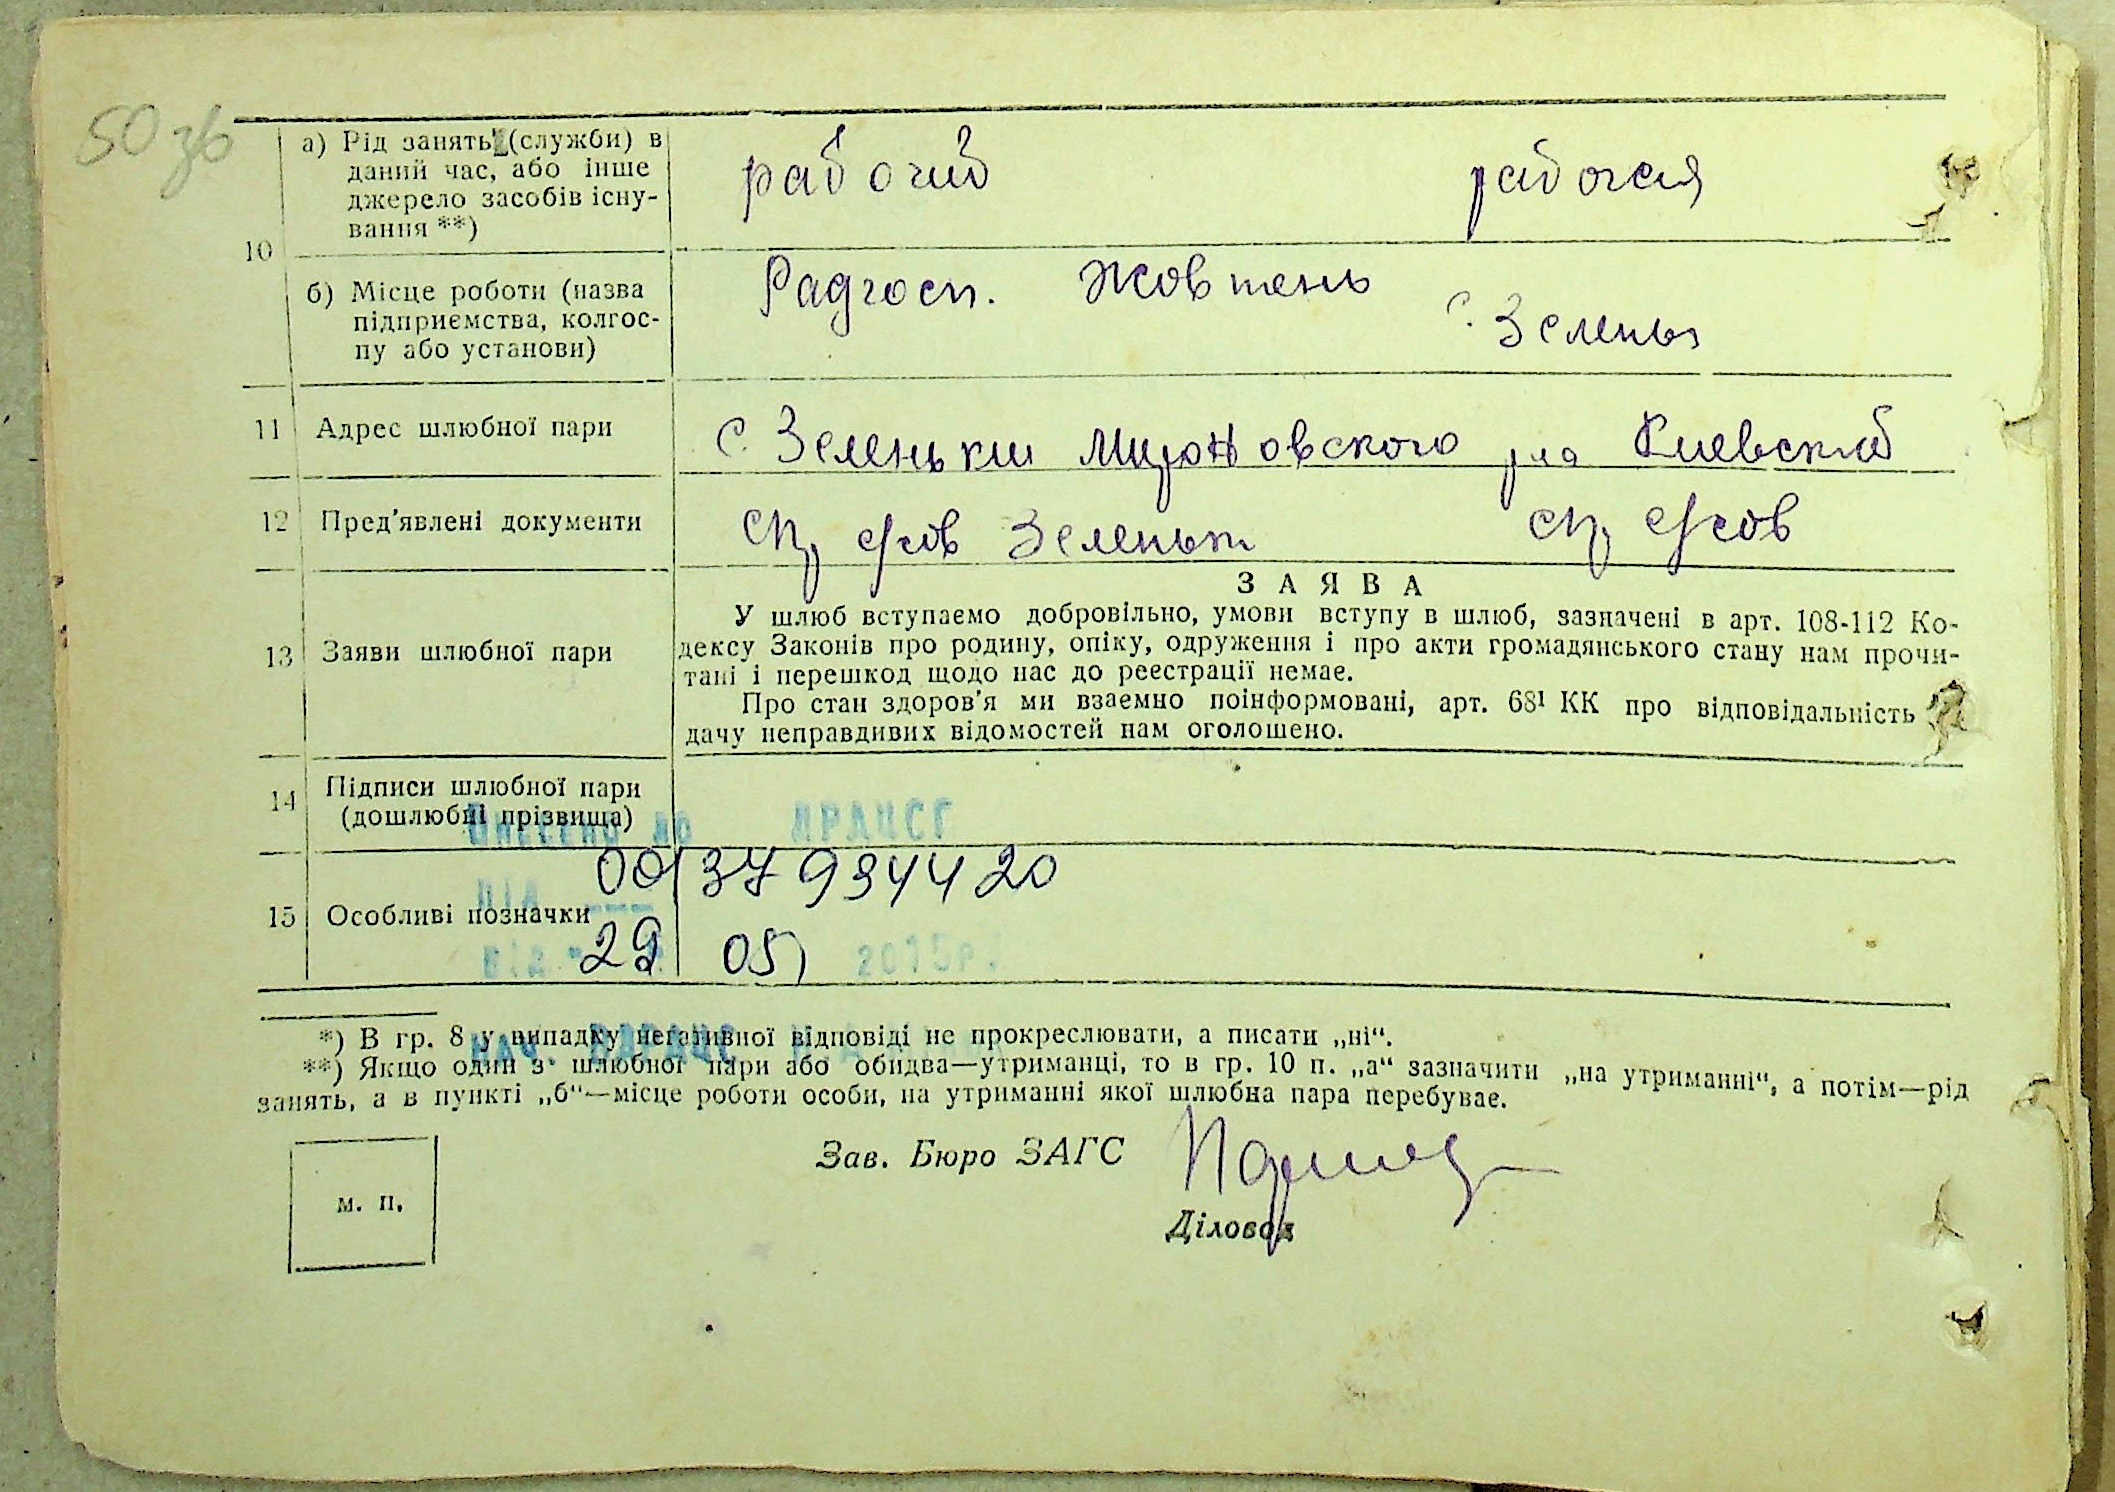 50 зв
а) Рід занять (служби) в
даний час, або інше
джерело засобів існу-
вання **)
рабочий
рабочая
10
б) Місце роботи (назва
підприємства, колгос-
пу або установи)
Радгосп. Жовтень
с. Зелень
11 Адрес шлюбної пари
с. Зеленьки Мироновского р на Киевский
12 Пред'явлені документи
спр Зеленьк
спр
13 Заяви шлюбної пари
ЗАЯВА
У шлюб вступаємо добровільно, умови вступу в шлюб, зазначені в арт. 108-112 Ко-
дексу Законів про родину, опіку, одруження і про акти громадянського стану нам прочи-
тані і перешкод щодо нас до реестрації немае.
Про стан здоров'я ми взаемно поінформовані, арт. 68¹ КК про відповідальність
дачу неправдивих відомостей нам оголошено.
14 Підписи шлюбної пари
(дошлюбні прізвища)
Внесено до ДРАЦСГ
00137934420
15 Особливі позначки
від 29 05 2015р.
*) В гр. 8 у випадку негативної відповіді не прокреслювати, а писати „ні“.
Нач. ВДРАЦС
**) Якщо один з шлюбної пари або обидва—утриманці, то в гр. 10 п. „а“ зазначити „на утриманні“, а потім—рід
занять, а в пункті „б“—місце роботи особи, на утриманні якої шлюбна пара перебувае.
Зав. Бюро ЗАГС
м. п.
Діловод